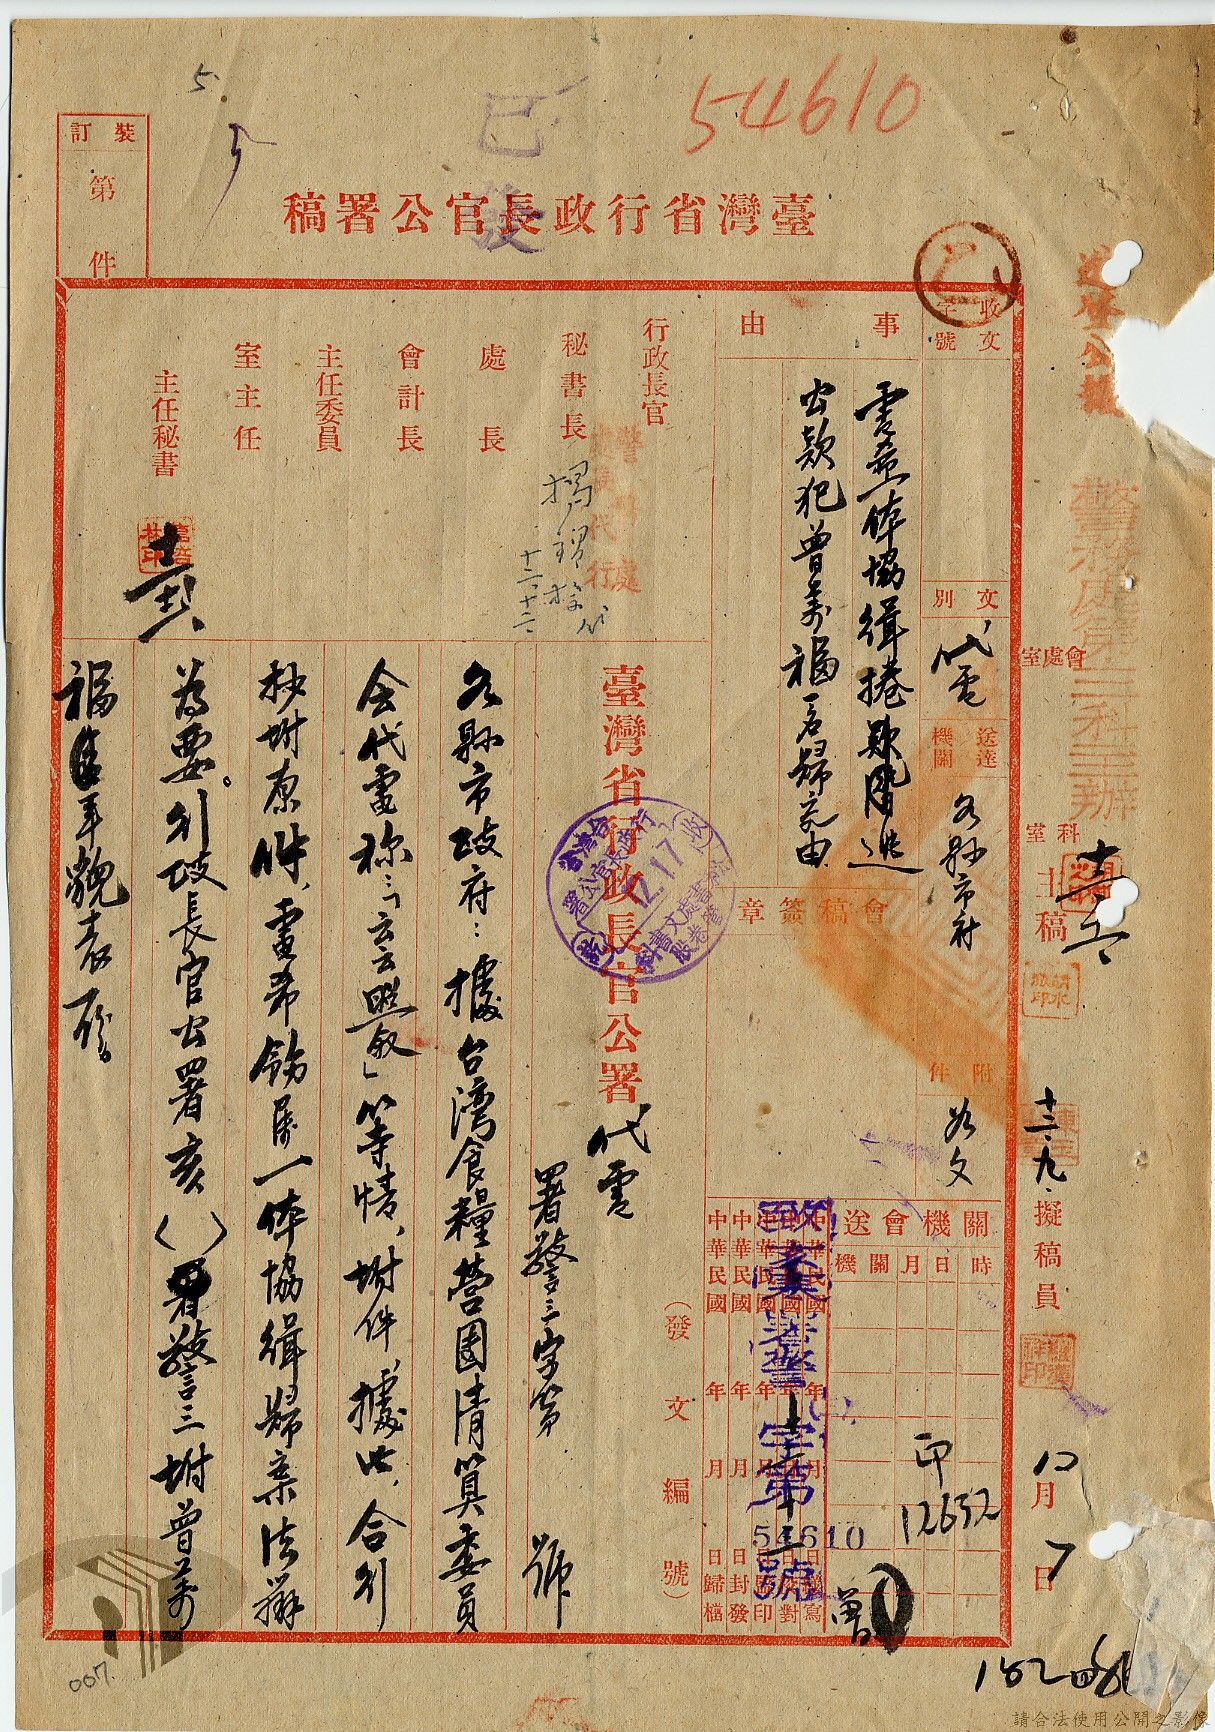 5
54610
已發
裝訂
第
件
臺灣省行政長官公署稿
送登公報
警務處第三科主辦
收文
字號
事由
電希一体協緝捲款潛逃
公款犯曾萬福一名歸究由
文別
代電
送達機關
各縣市府
附件
如文
會處室
科室
主稿
十二、九、
擬稿員
12月7日
行政長官
秘書長
處長
會計長
主任委員
室主任
主任秘書
十二、十二
會稿簽章
關機會送
時日月關機
印
12632
中華民國 年 月 日繕寫
中華民國 年 月 日校對
中華民國 年 月 日監印
中華民國 年 月 日封發
中華民國 年 月 日歸檔
署警字第 54610 號
(發文編號)
臺灣省行政長官公署代電
署警三字第 號
12.17
各縣市政府：據台灣食糧營團清算委員
会代電称：「云云照敘」等情，附件，據此，合引
抄附原件，電希飭屬一体協緝歸案法辦
為要。引政長官公署亥（ ）署警三附曾萬
福年貌表一份
007
請合法使用公開之影像